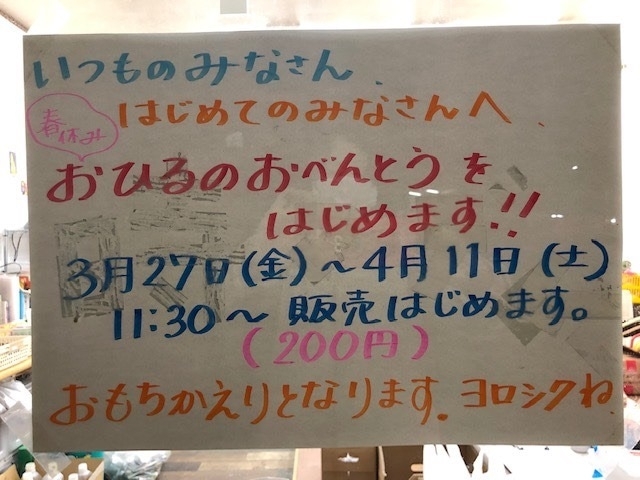 いつものみなさん、
はじめてのみなさんへ、
春休み
おひるのおべんとうを
はじめます!!
3月27日(金)~4月11日(土)
11:30~ 販売はじめます。
(200円)
おもちかえりとなります。ヨロシクね